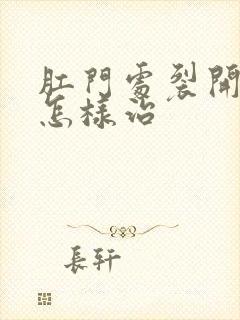 肛門處裂開
怎樣治
長軒